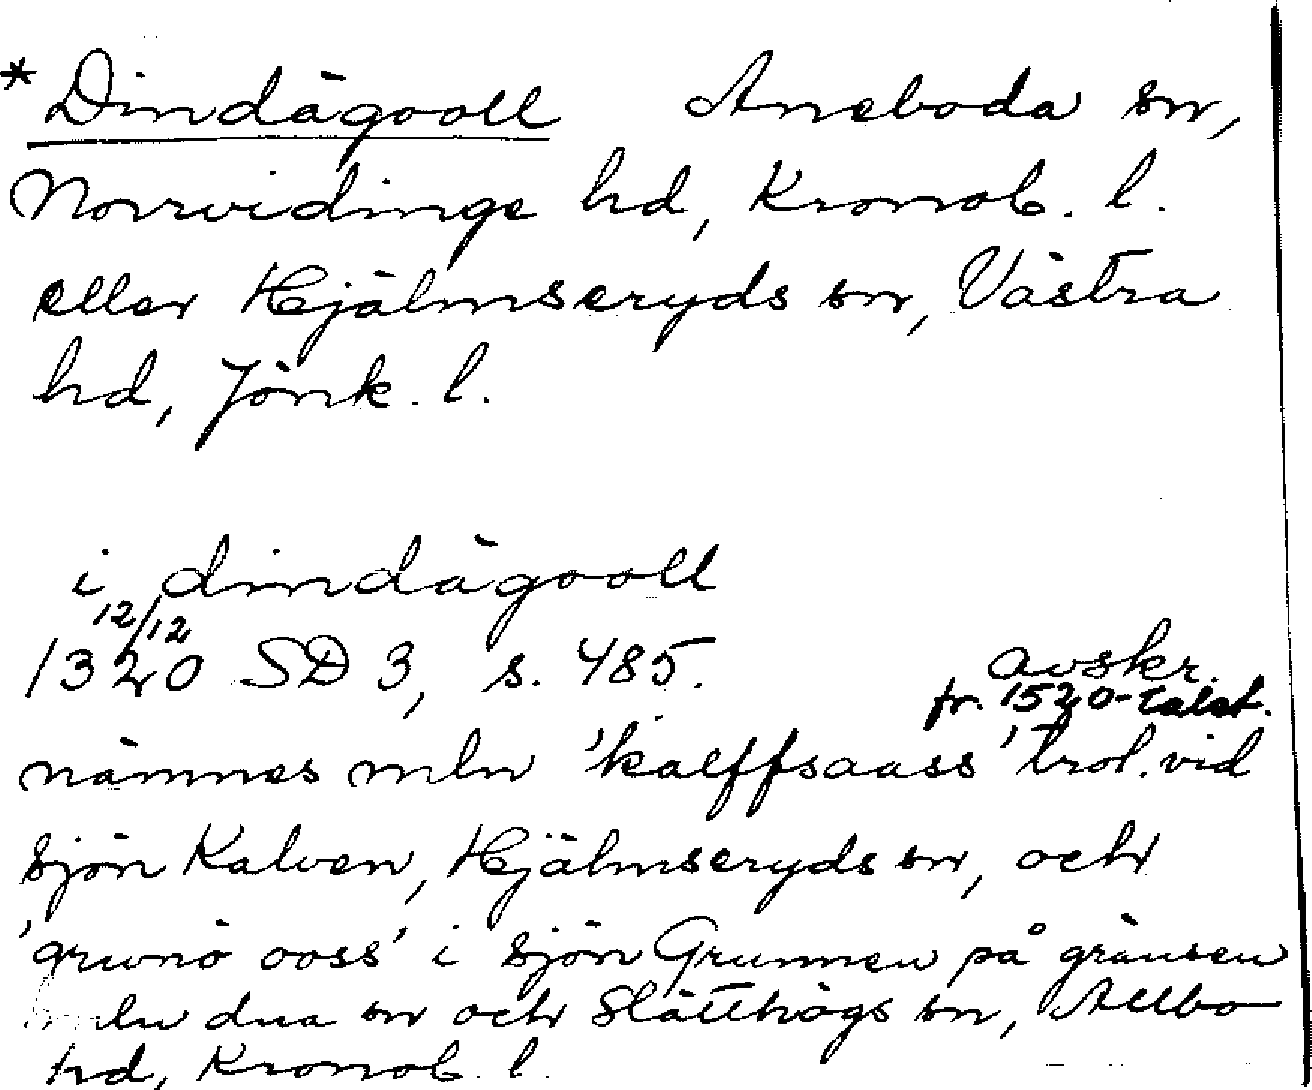 * Dindägooll Aneboda sn,
Norrvidinge hd, Kronob. l.
eller Hjälmseryds sn, Västra
hd, Jönk. l.
i dindägooll
12/12
1320 SD 3, s. 485. avskr.
fr. 1520-talet.
nämnes mln 'kalffsaass' trol. vid
sjön Kalven, Hjälmseryds sn, och
'grwnö ooss' i sjön Grunnen på gränsen
mln dna sn och Slätthögs sn, Allbo
hd, Kronob. l.